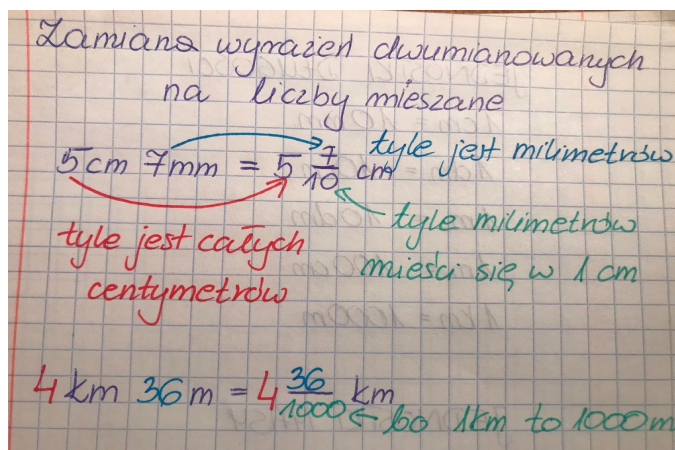 Zamiana wyrażeń dwumianowanych
na liczby mieszane
5cm 7mm = 5 7/10 cm
tyle jest milimetrów
tyle milimetrów
mieści się w 1 cm
tyle jest całych
centymetrów
4 km 36 m = 4 36/1000 km
bo 1km to 1000m